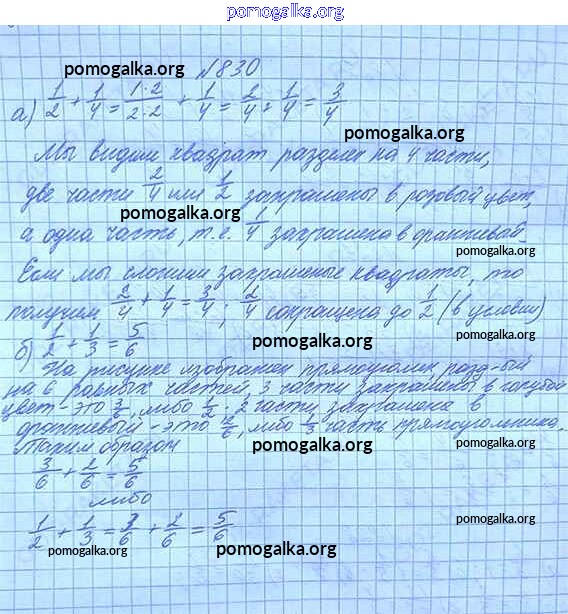 pomogalka.org
pomogalka.org №830
а) 1/2 + 1/4 = 1·2/2·2 + 1/4 = 2/4 + 1/4 = 3/4
pomogalka.org
Мы видим квадрат разделен на 4 части,
две части 2/4 или 1/2 закрашены в розовый цвет,
pomogalka.org
а одна часть, т.е. 1/4 закрашена в оранжевый.
pomogalka.org
Если мы сложим закрашеные квадраты, то
получим 2/4 + 1/4 = 3/4; 2/4 сокращена до 1/2 (в условии)
pomogalka.org
б) 1/2 + 1/3 = 5/6
pomogalka.org
На рисунке изображен прямоугольник разд-ый
на 6 равных частей 3 части закрашены в голубой
цвет - это 3/6, либо 1/2; 2 части закрашена в
оранжевый - это 2/6, либо 1/3 часть прямоугольника.
Таким образом
pomogalka.org
pomogalka.org
3/6 + 2/6 = 5/6
либо
1/2 + 1/3 = 3/6 + 2/6 = 5/6
pomogalka.org
pomogalka.org
pomogalka.org